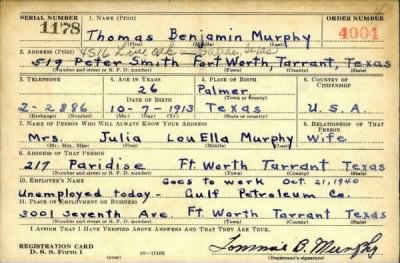 SERIAL NUMBER 1. NAME (Print) ORDER NUMBER
1178 Thomas Benjamin Murphy 4004
2. ADDRESS (Print) 4516 Live oak - Dallas, Texas
519 Peter Smith Fort Worth, Tarrant, Texas
(Number and street or R. F. D. number) (Town) (County) (State)
3. TELEPHONE 4. AGE IN YEARS 5. PLACE OF BIRTH 6. COUNTRY OF CITIZENSHIP
26 Palmer
DATE OF BIRTH (Town or county)
2-2886 10-7-1913 Texas U.S.A.
(Exchange) (Number) (Mo.) (Day) (Yr.) (State or country)
7. NAME OF PERSON WHO WILL ALWAYS KNOW YOUR ADDRESS 8. RELATIONSHIP OF THAT PERSON
Mrs. Julia Lou Ella Murphy Wife
(Mr., Mrs., Miss) (First) (Middle) (Last)
9. ADDRESS OF THAT PERSON
217 Paridise Ft. Worth Tarrant Texas
(Number and street or R. F. D. number) (Town) (County) (State)
10. EMPLOYER'S NAME Goes to work Oct. 21, 1940
Unemployed today - Gulf Petroleum Co.
11. PLACE OF EMPLOYMENT OR BUSINESS
3001 Seventh Ave. Ft. Worth Tarrant Texas
(Number and street or R. F. D. number) (Town) (County) (State)
I AFFIRM THAT I HAVE VERIFIED ABOVE ANSWERS AND THAT THEY ARE TRUE.
REGISTRATION CARD
D. S. S. Form 1 Tommie B. Murphy